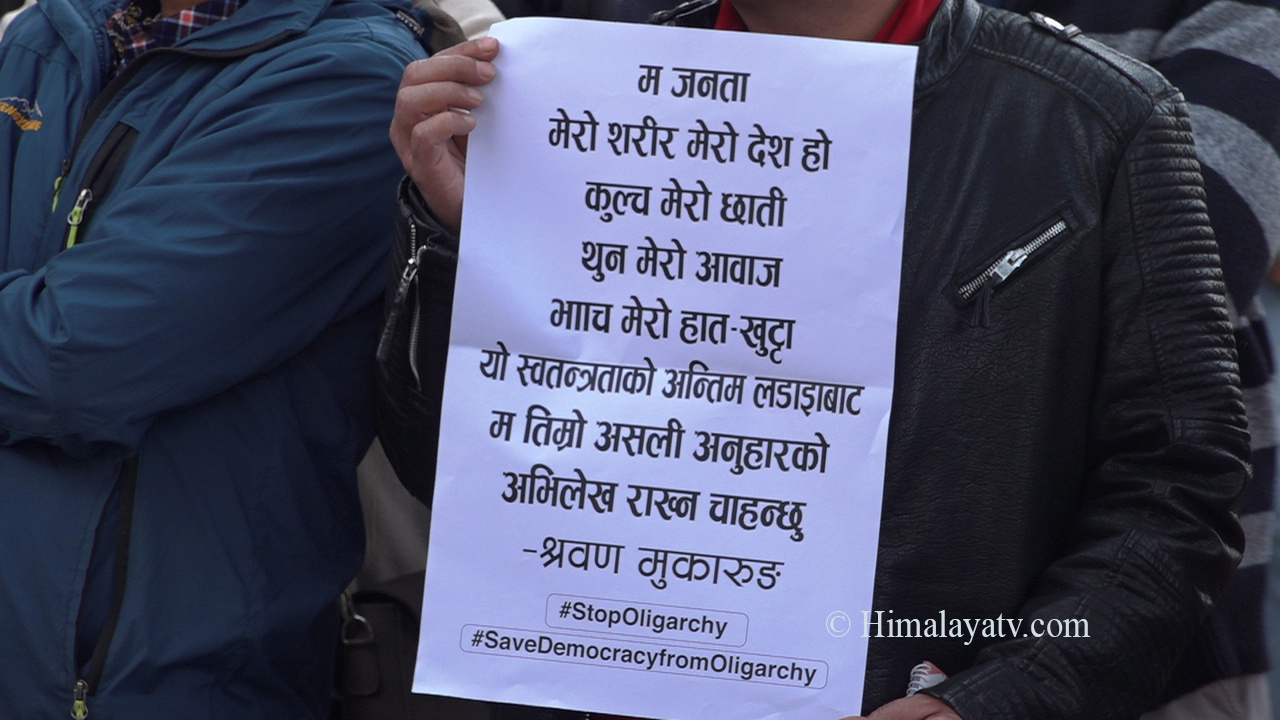 म जनता
मेरो शरीर मेरो देश हो
कुल्च मेरो छाती
थुन मेरो आवाज
भााच मेरो हात-खुट्टा
यो स्वतन्त्रताको अन्तिम लडाइाबाट
म तिम्रो असली अनुहारको
अभिलेख राख्न चाहन्छु
-श्रवण मुकारुङ
#StopOligarchy
#SaveDemocracyfromOligarchy
© Himalayatv.com